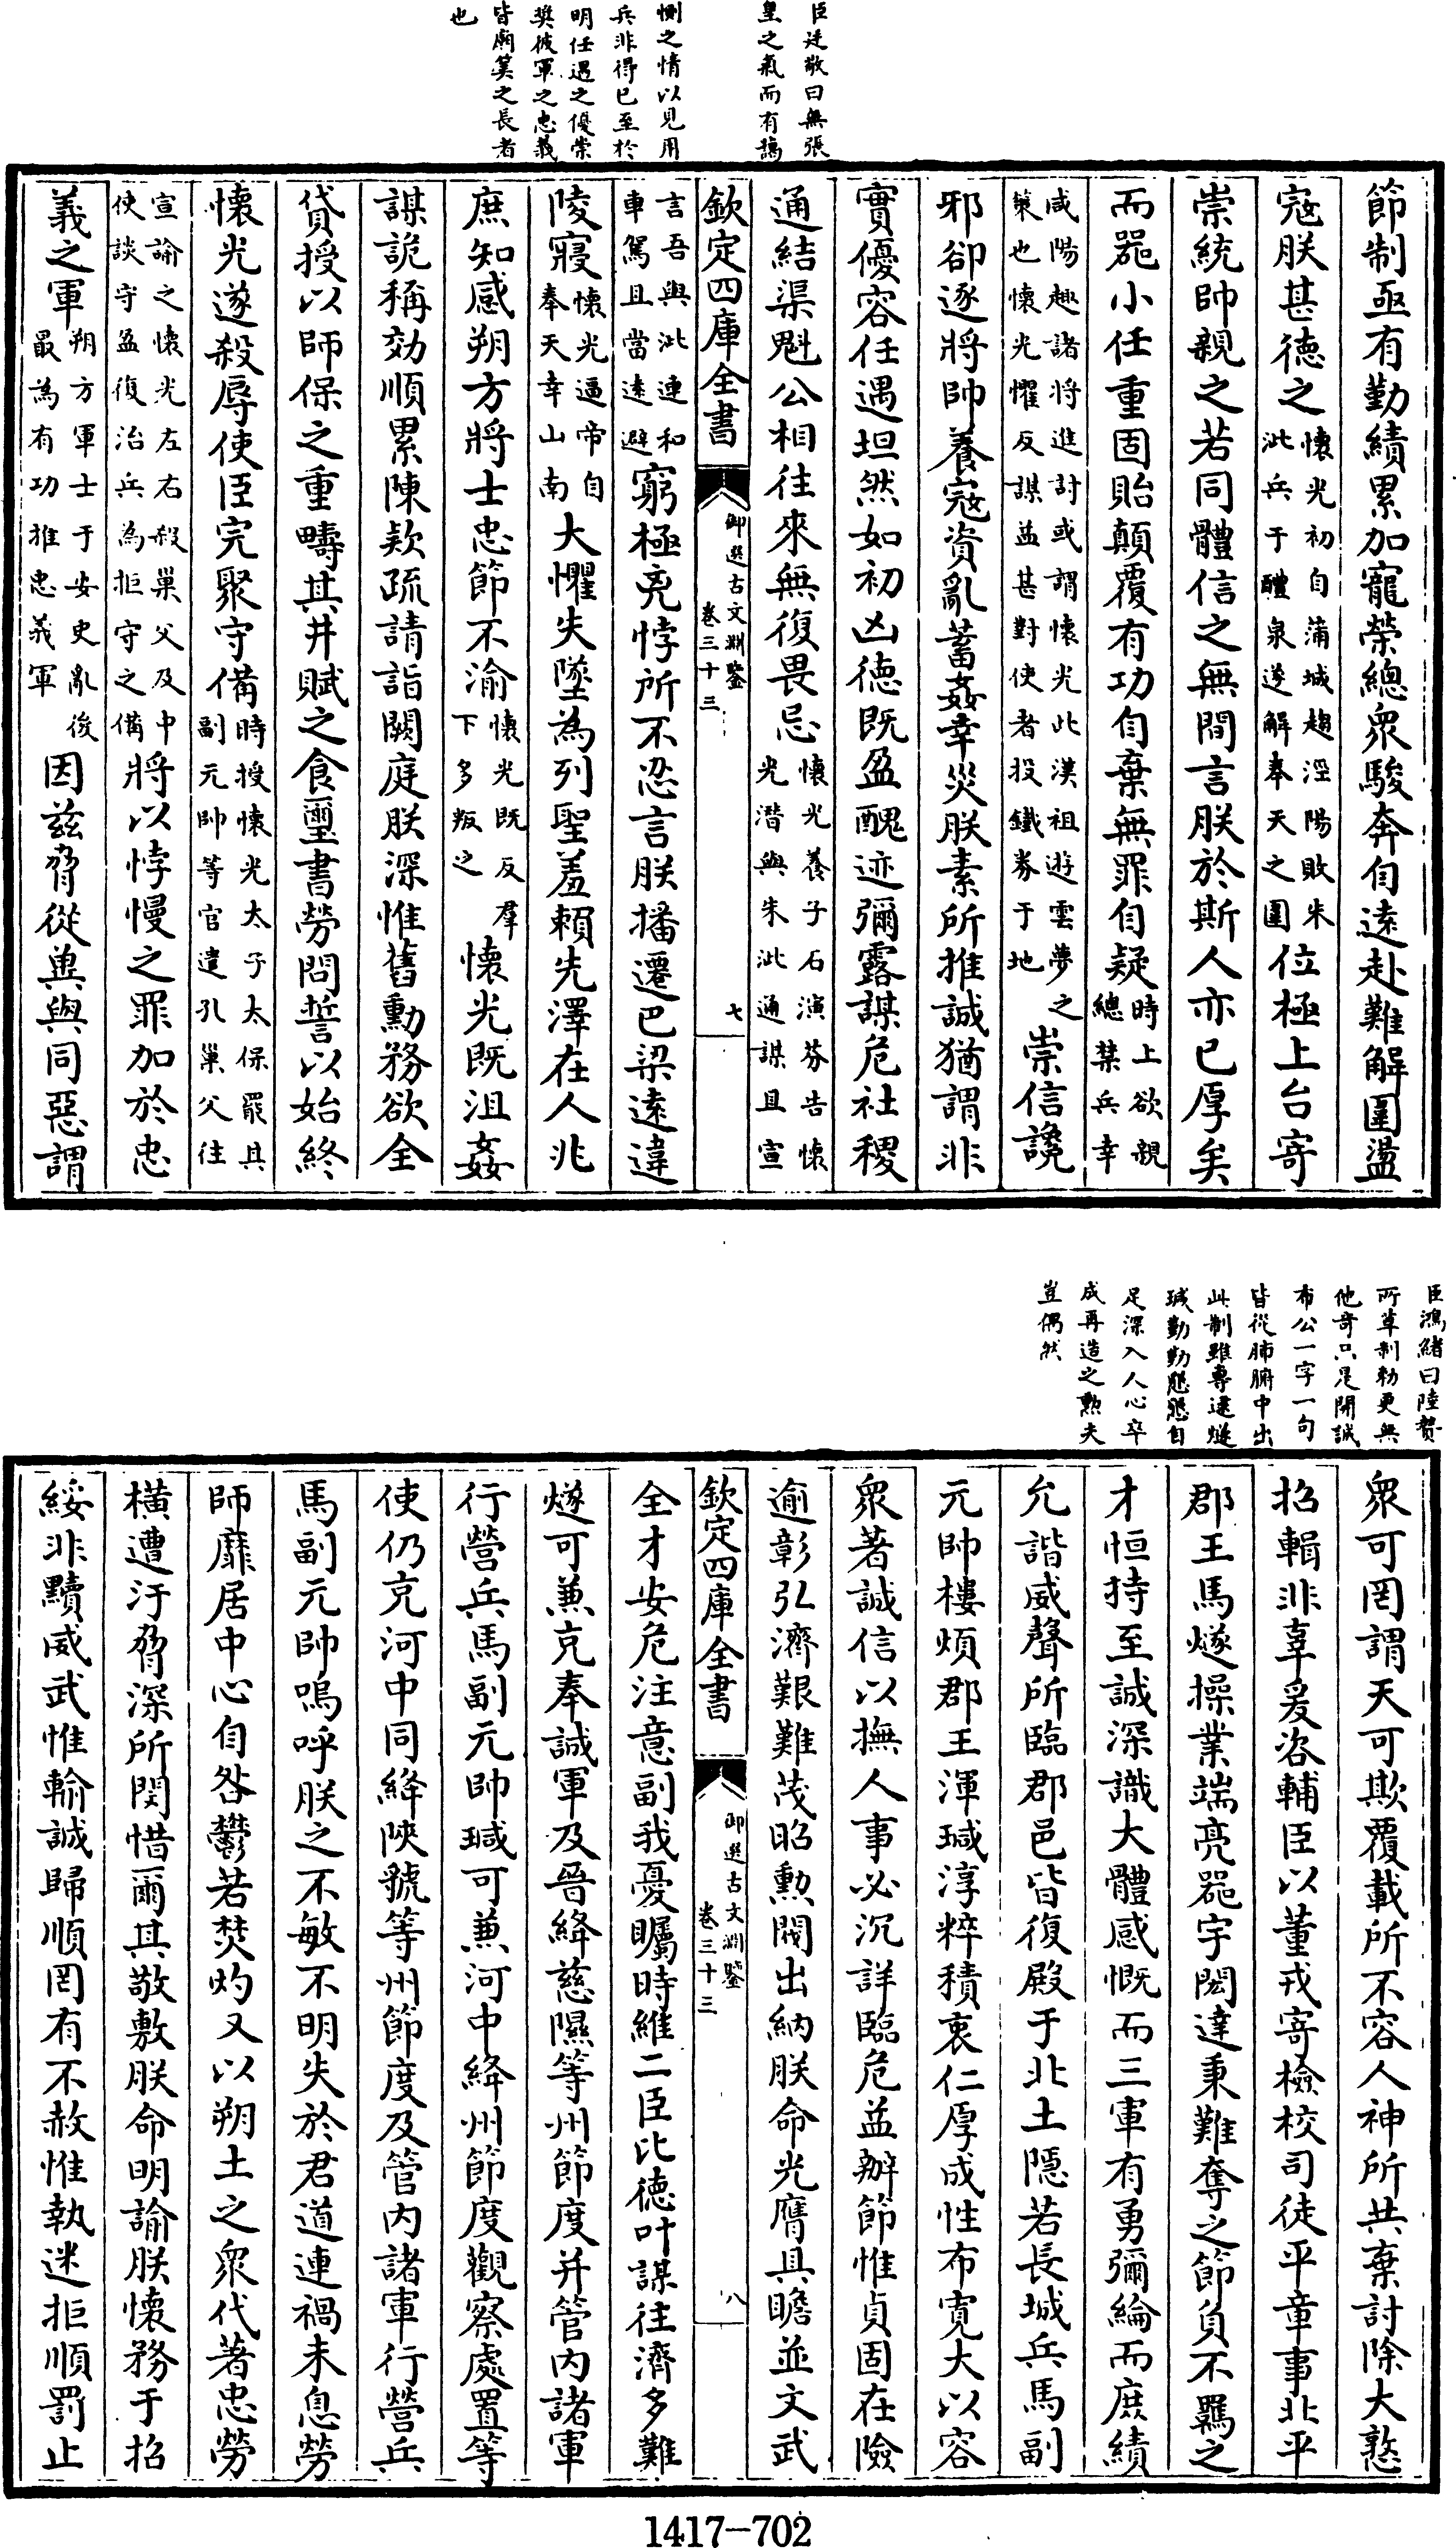 臣廷敬曰無張
皇之氣而有
惻之情以見用
兵非得已至於
明任遇之優崇
奬彼軍之忠義
皆廟筭之長者
也
節制亟有勤績累加寵榮總衆駿奔自逺赴難解圍盪
宼朕甚德之懷光初自蒲城趨涇陽敗朱泚兵于醴泉遂解奉天之圍位極上台寄
崇統帥親之若同體信之無間言朕於斯人亦已厚矣
而噐小任重固貽顛覆有功自棄無罪自疑時上欲親總禁兵幸
咸陽趣諸将進討或謂懷光此漢祖遊雲夢之䇿也懷光懼反謀益甚對使者投鐵券于地崇信讒
邪卻逐將帥養宼資亂蓄姦幸災朕素所推誠猶謂非
實優容任遇坦然如初凶德既盈醜迹彌露謀危社稷
通結渠魁公相往來無復畏忌懷光養子石演芬告懷光潛與朱泚通謀且宣
欽定四庫全書
御選古文淵鑒
卷三十三
七
言吾與泚連和車駕且當逺避窮極兇悖所不忍言朕播遷巴梁逺違
陵寢懷光逼帝自奉天幸山南大懼失墜為列聖羞頼先澤在人兆
庶知感朔方將士忠節不渝懷光既反羣下多叛之懷光既沮姦
謀詭稱効順累陳欵疏請詣闕庭朕深惟舊勳務欲全
貸授以師保之重疇其井賦之食璽書勞問誓以始終
懷光遂殺辱使臣完聚守備時授懷光太子太保罷其副元帥等官遣孔巢父往
宣諭之懷光左右殺巢父及中使談守盈復治兵為拒守之備將以悖慢之罪加於忠
義之軍朔方軍士于安史亂後最為有功推忠義軍因兹脅從輿與同惡謂
臣鴻緒曰陸贄
所草制勅更無
他竒只是開誠
布公一字一句
皆從肺腑中出
此制雖專逮燧
瑊勤勤懇懇自
足深入人心卒
成再造之勲夫
豈偶然
衆可罔謂天可欺覆載所不容人神所共棄討除大憝
招輯非辜爰咨輔臣以董戎寄檢校司徒平章事北平
郡王馬燧操業端亮噐宇閎達秉難奪之節負不羈之
才恒持至誠深識大體感慨而三軍有勇彌綸而庶績
允諧威聲所臨郡邑皆復殿于北土隱若長城兵馬副
元帥樓煩郡王渾瑊淳粹積衷仁厚成性布寛大以容
衆著誠信以撫人事必沉詳臨危益辦節惟貞固在險
逾彰弘濟艱難茂昭勲閥出納朕命光膺具瞻並文武
欽定四庫全書
御選古文淵鑒
卷三十三
八
全才安危注意副我憂矚時維二臣比德叶謀往濟多難
燧可兼充奉誠軍及晉絳慈隰等州節度并管内諸軍
行營兵馬副元帥瑊可兼河中絳州節度觀察處置等
使仍充河中同絳陜虢等州節度及管内諸軍行營兵
馬副元帥嗚呼朕之不敏不明失於君道連禍未息勞
師靡居中心自咎鬱若焚灼又以朔土之衆代著忠勞
横遭汙脅深所閔惜爾其敬敷朕命明諭朕懷務于招
綏非黷威武惟輸誠歸順罔有不赦惟執迷拒順罰止
1417-702